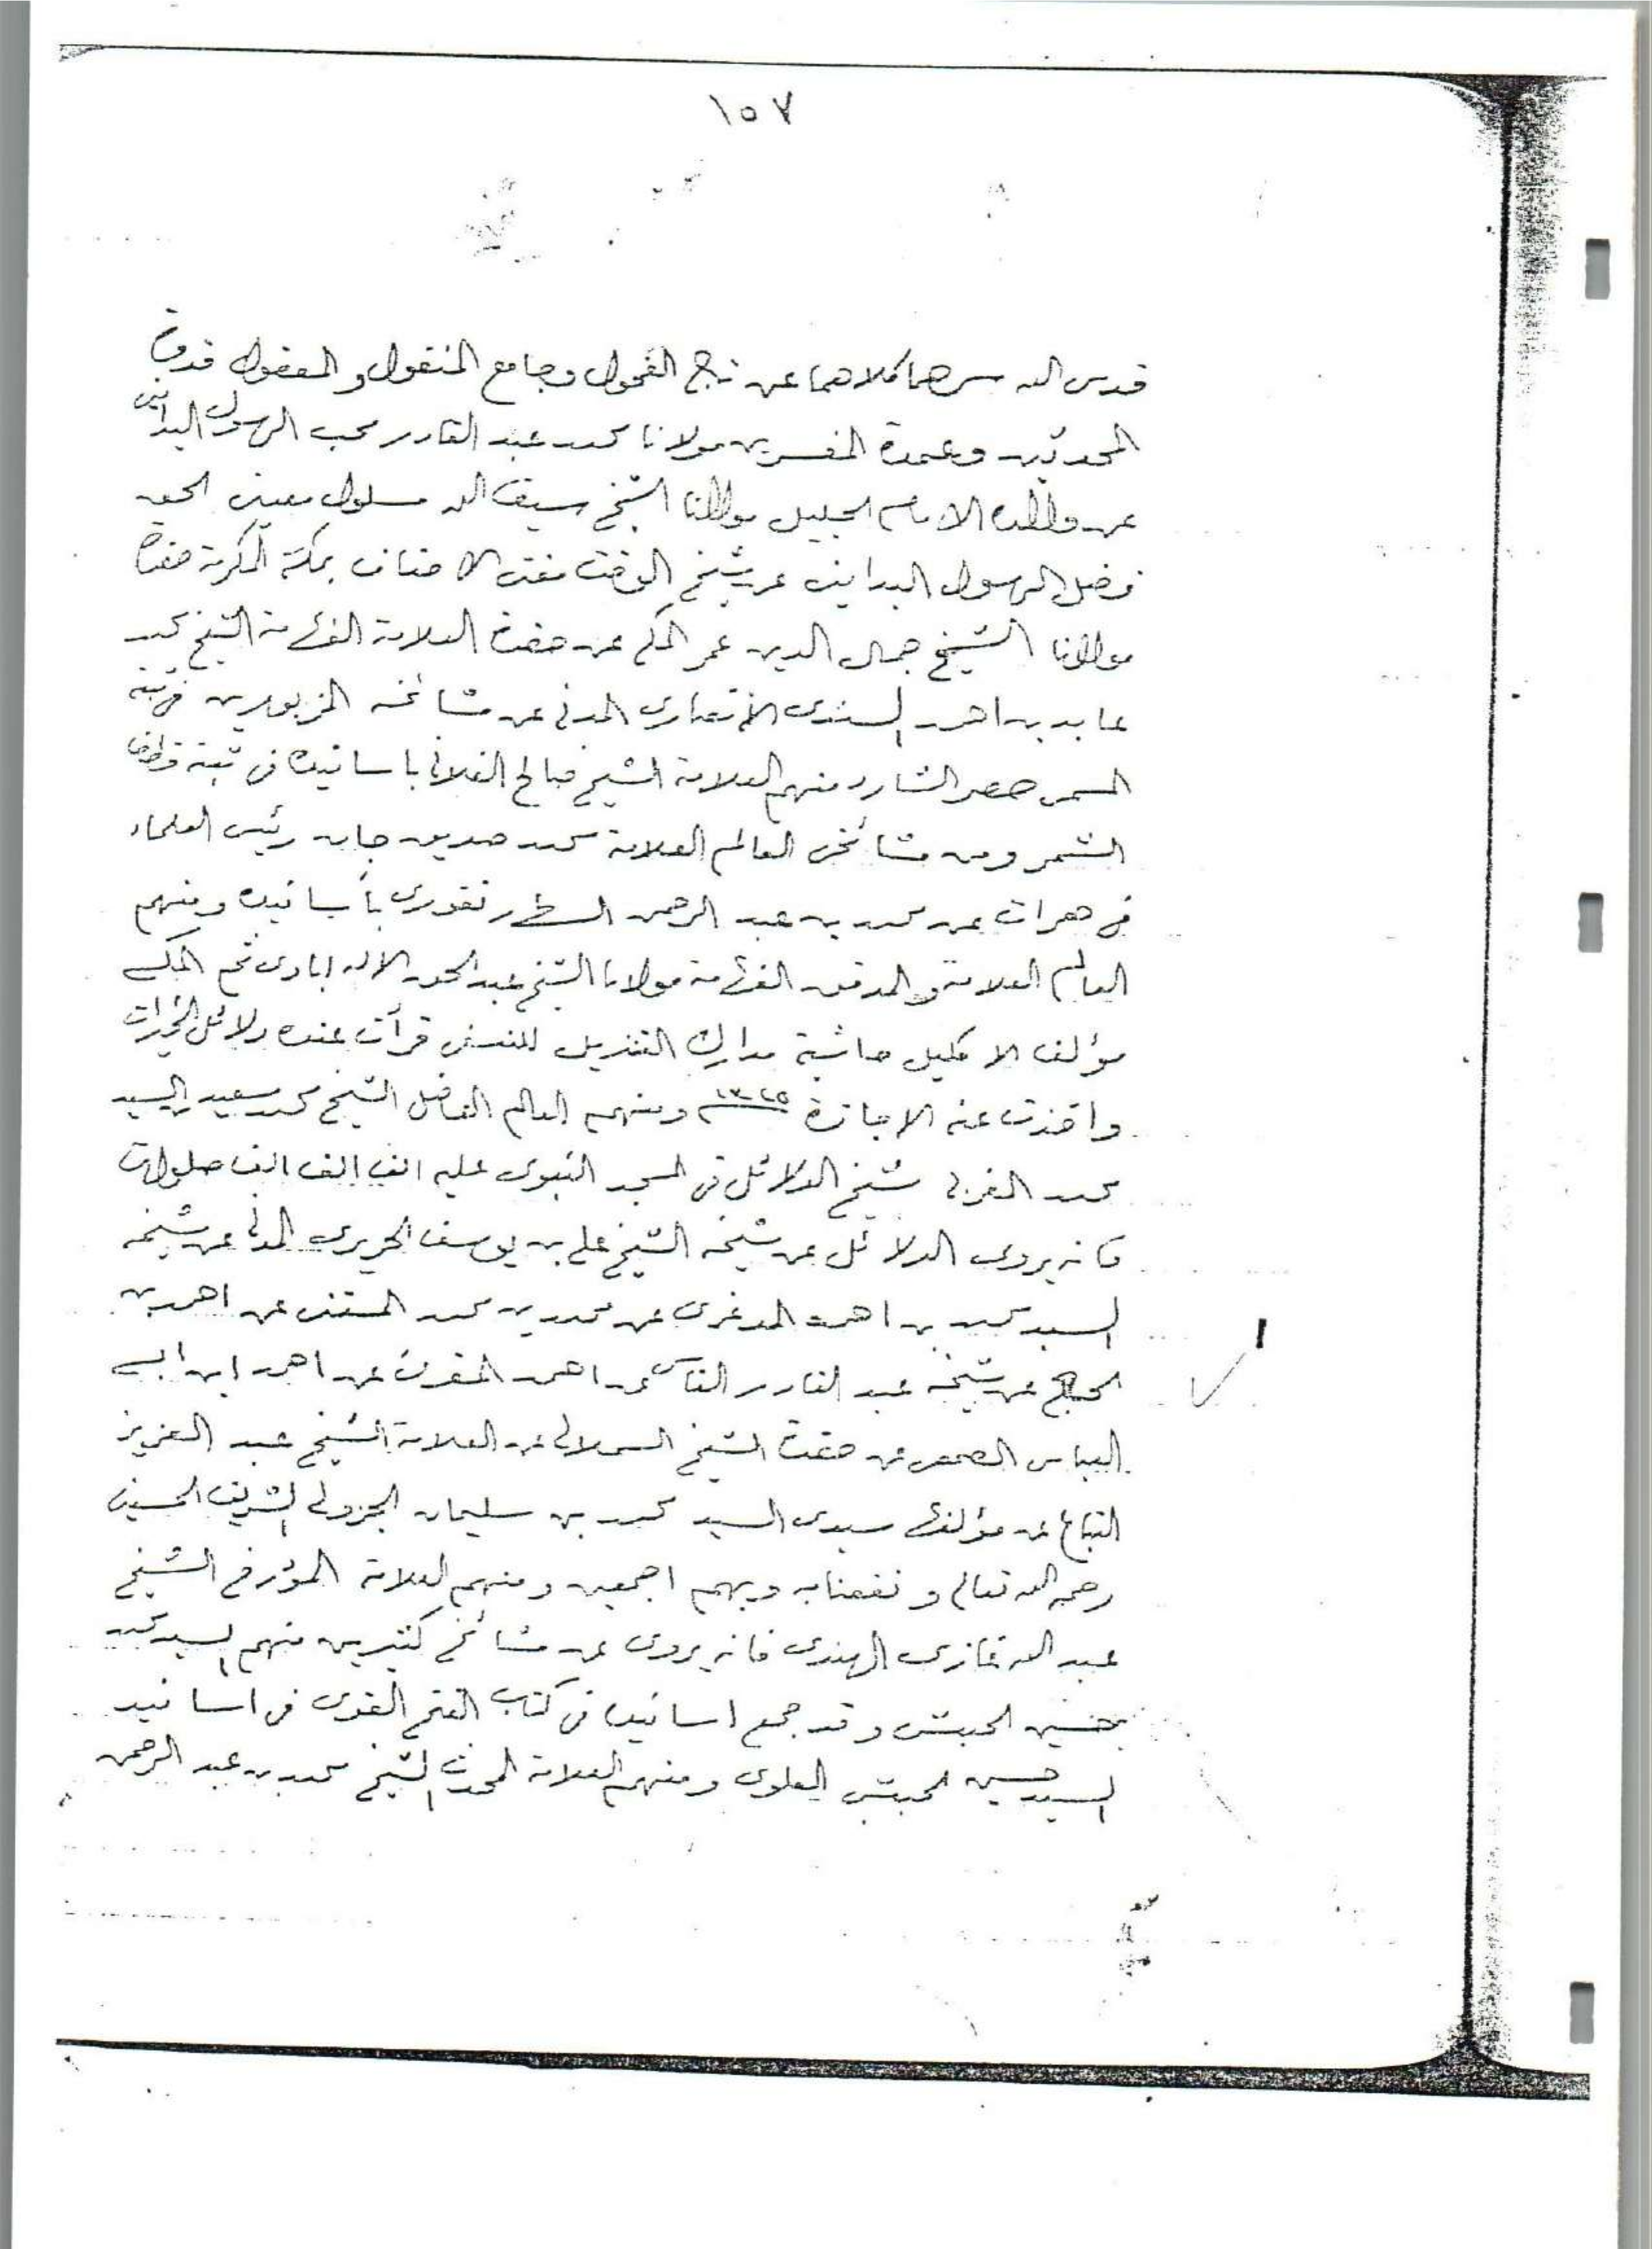 ١٥٧
قدس الله سرهما كلاهما عن تاج الفحول وجامع المنقول والمعقول قدوة
المحدثين وعمدة المفسرين مولانا محمد عبد القادر محب الرسول البدايني
عن والده الامام الجليل مولانا الشيخ سيف الله مسلول معين الحق
فضل الرسول البدايني عن شيخ الوقت مفتى الاحناف بمكة المكرمة حضرة
مولانا الشيخ جمال الدين عمر المكى عن حضرة العلامة الفهامة الشيخ محمد
عابد بن احمد السندى الأنصارى المدنى عن مشائخه المزبورين فى ثبته
المسمى حصر الشارد منهم العلامة الشيخ صالح الفلانى باساتيده فى ثبته قطف
الثمر ومن مشائخى العالم العلامة محمد صديق جان رئيس العلماء
فى هرات عن محمد بن عبد الرحمن بأسانيده ومنهم
العالم العلامة والمدقق الفهامة مولانا الشيخ عبد الحق الاله ابادى ثم المكى
مؤلف الاكليل حاشية مدارك التنزيل للنسفى قرأت عنده دلائل الخيرات
واخذت عنه الاجازة ١٣٢٥ ومنهم العالم الفاضل الشيخ محمد سعيد بن السيد
محمد المغربى شيخ الدلائل فى المسجد النبوى عليه الف الف الف صلوات
فانه يروى الدلائل عن شيخه الشيخ على بن يوسف الحريرى المدنى عن شيخه
السيد محمد بن احمد المدغرى عن محمد بن محمد المثنى عن احمد بن
الحاج عن شيخه عبد القادر الفاسى عن احمد المقرى عن احمد ابن ابى
العباس الصمعى عن حضرت الشيخ السملالى عن العلامة الشيخ عبد العزيز
التباع عن مؤلفها سيدى السيد محمد بن سليمان الجزولى الشريف الحسينى
رحمه الله تعالى ونفعنا به وبهم اجمعين ومنهم العلامة المؤرخ الشيخ
عبد الله غازى الهندى فانه يروى عن مشائخ كثيرين منهم السيد محمد
بحسين الحبشى وقد جمع اسانيده فى كتاب الفتح القوى فى اسانيد
السيد حسين الحبشى العلوى ومنهم العلامة المحدث الشيخ محمد بن عبد الرحمن